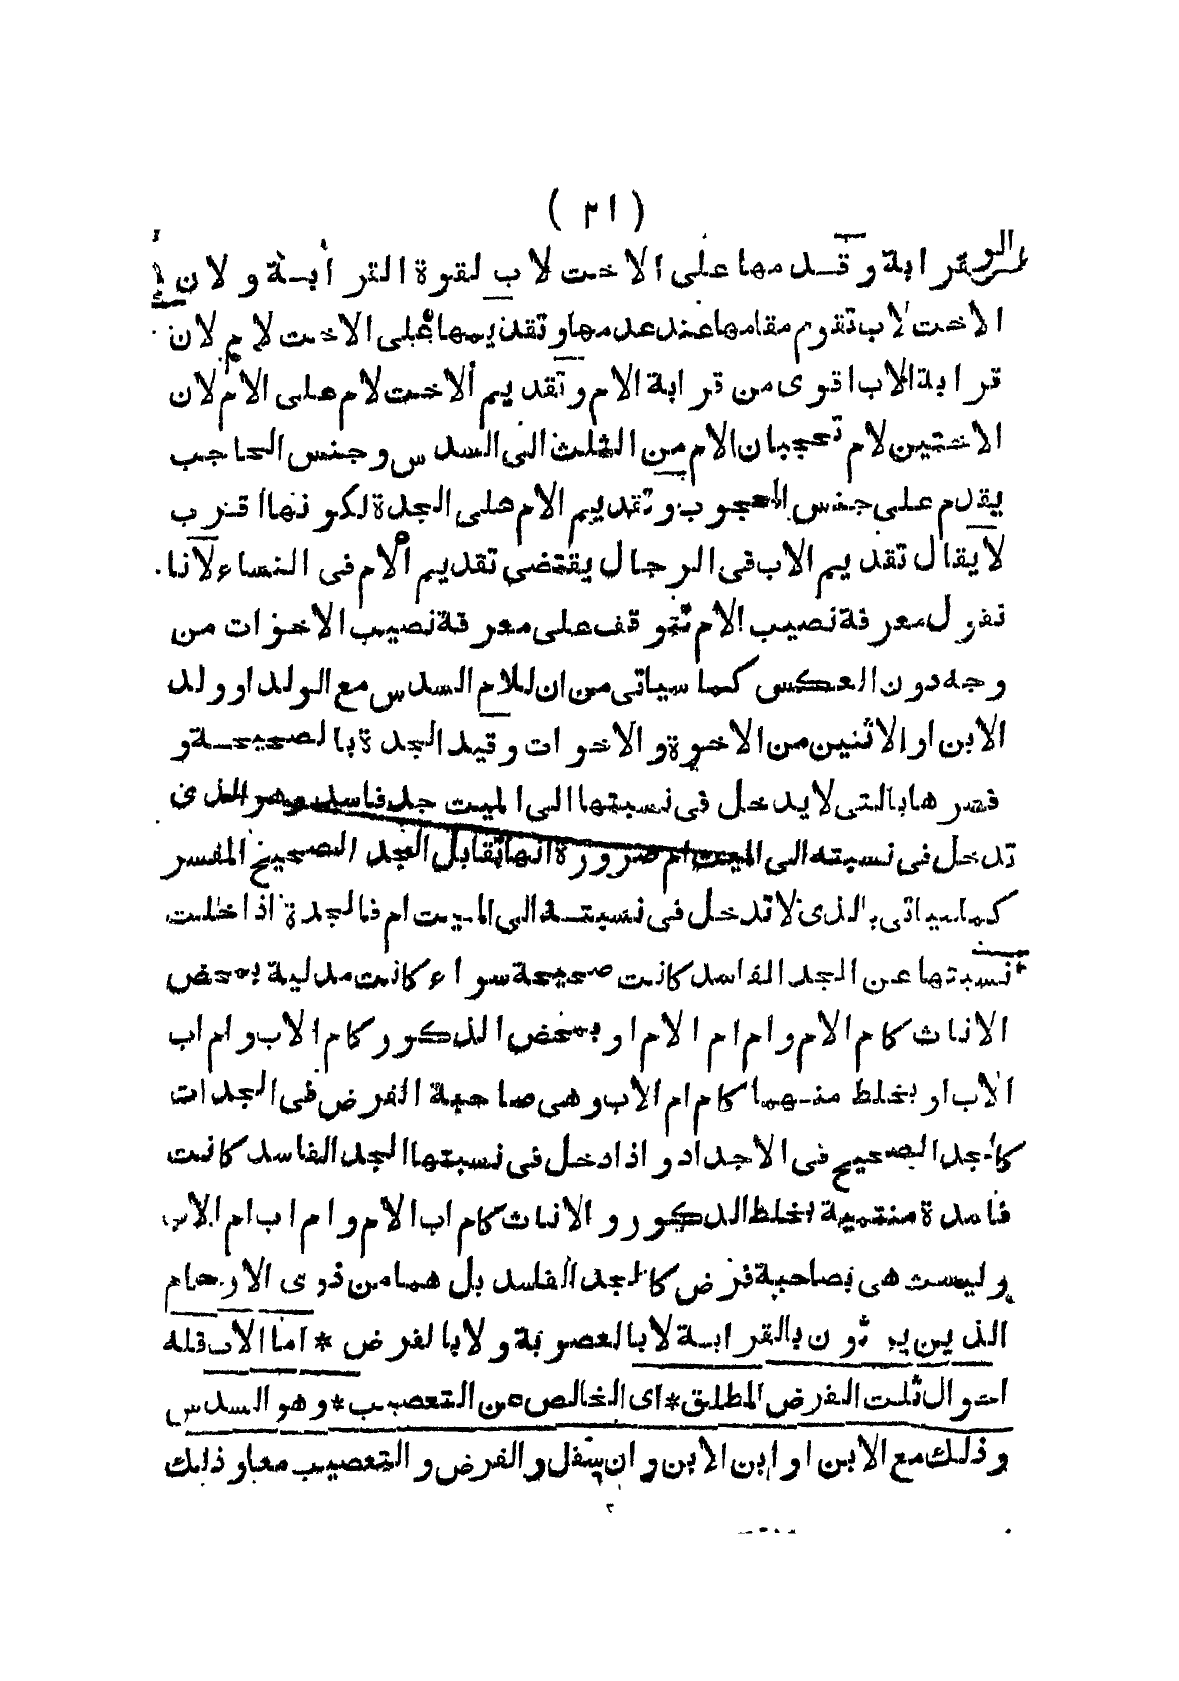 ( ٢١ )
قرابة وقدمها على الاخت لاب لقوة القرابة ولان
الاخت لاب تقوم مقامها عند عدمها وتقديمها على الاخت لام لان
قرابة الاب اقوى من قرابة الام وتقديم الاخت لام على الام لان
الاختين لام تحجبان الام من الثلث الى السدس وجنس الحاجب
يقدم على جنس المحجوب وتقديم الام على الجدة لكونها اقرب
لا يقال تقديم الاب فى الرجال يقتضى تقديم الام فى النساء لانا
نقول معرفة نصيب الام تتوقف على معرفة نصيب الاخوات من
وجه دون العكس كما سياتى من ان للام السدس مع الولد او ولد
الابن او الاثنين من الاخوة والاخوات وقيد الجدة بالصحيحة و
فسرها بالتى لا يدخل فى نسبتها الى الميت جد فاسد وهو الذى
تدخل فى نسبته الى الميت ام ضرورة انها تقابل الجد الصحيح المفسر
كما سياتى بالذى لا تدخل فى نسبته الى الميت ام فالجدة اذا خلت
نسبتها عن الجد الفاسد كانت صحيحة سواء كانت مدلية بمحض
الاناث كام الام وام ام الام او بمحض الذكور كام الاب وام اب
الاب او بخلط منهما كام ام الاب وهى صاحبة الفرض فى الجدات
كالجد الصحيح فى الاجداد واذا دخل فى نسبتها الجد الفاسد كانت
فاسدة منتمية بخلط الذكور والاناث كام اب الام وام اب ام الاب
وليست هى بصاحبة فرض كالجد الفاسد بل هما من ذوى الارحام
الذين يرثون بالقرابة لا بالعصوبة ولا بالفرض * اما الاب فله
احوال ثلث الفرض المطلق * اى الخالص من التعصيب * وهو السدس
وذلك مع الابن او ابن الابن وان سفل والفرض والتعصيب معا وذلك
٣